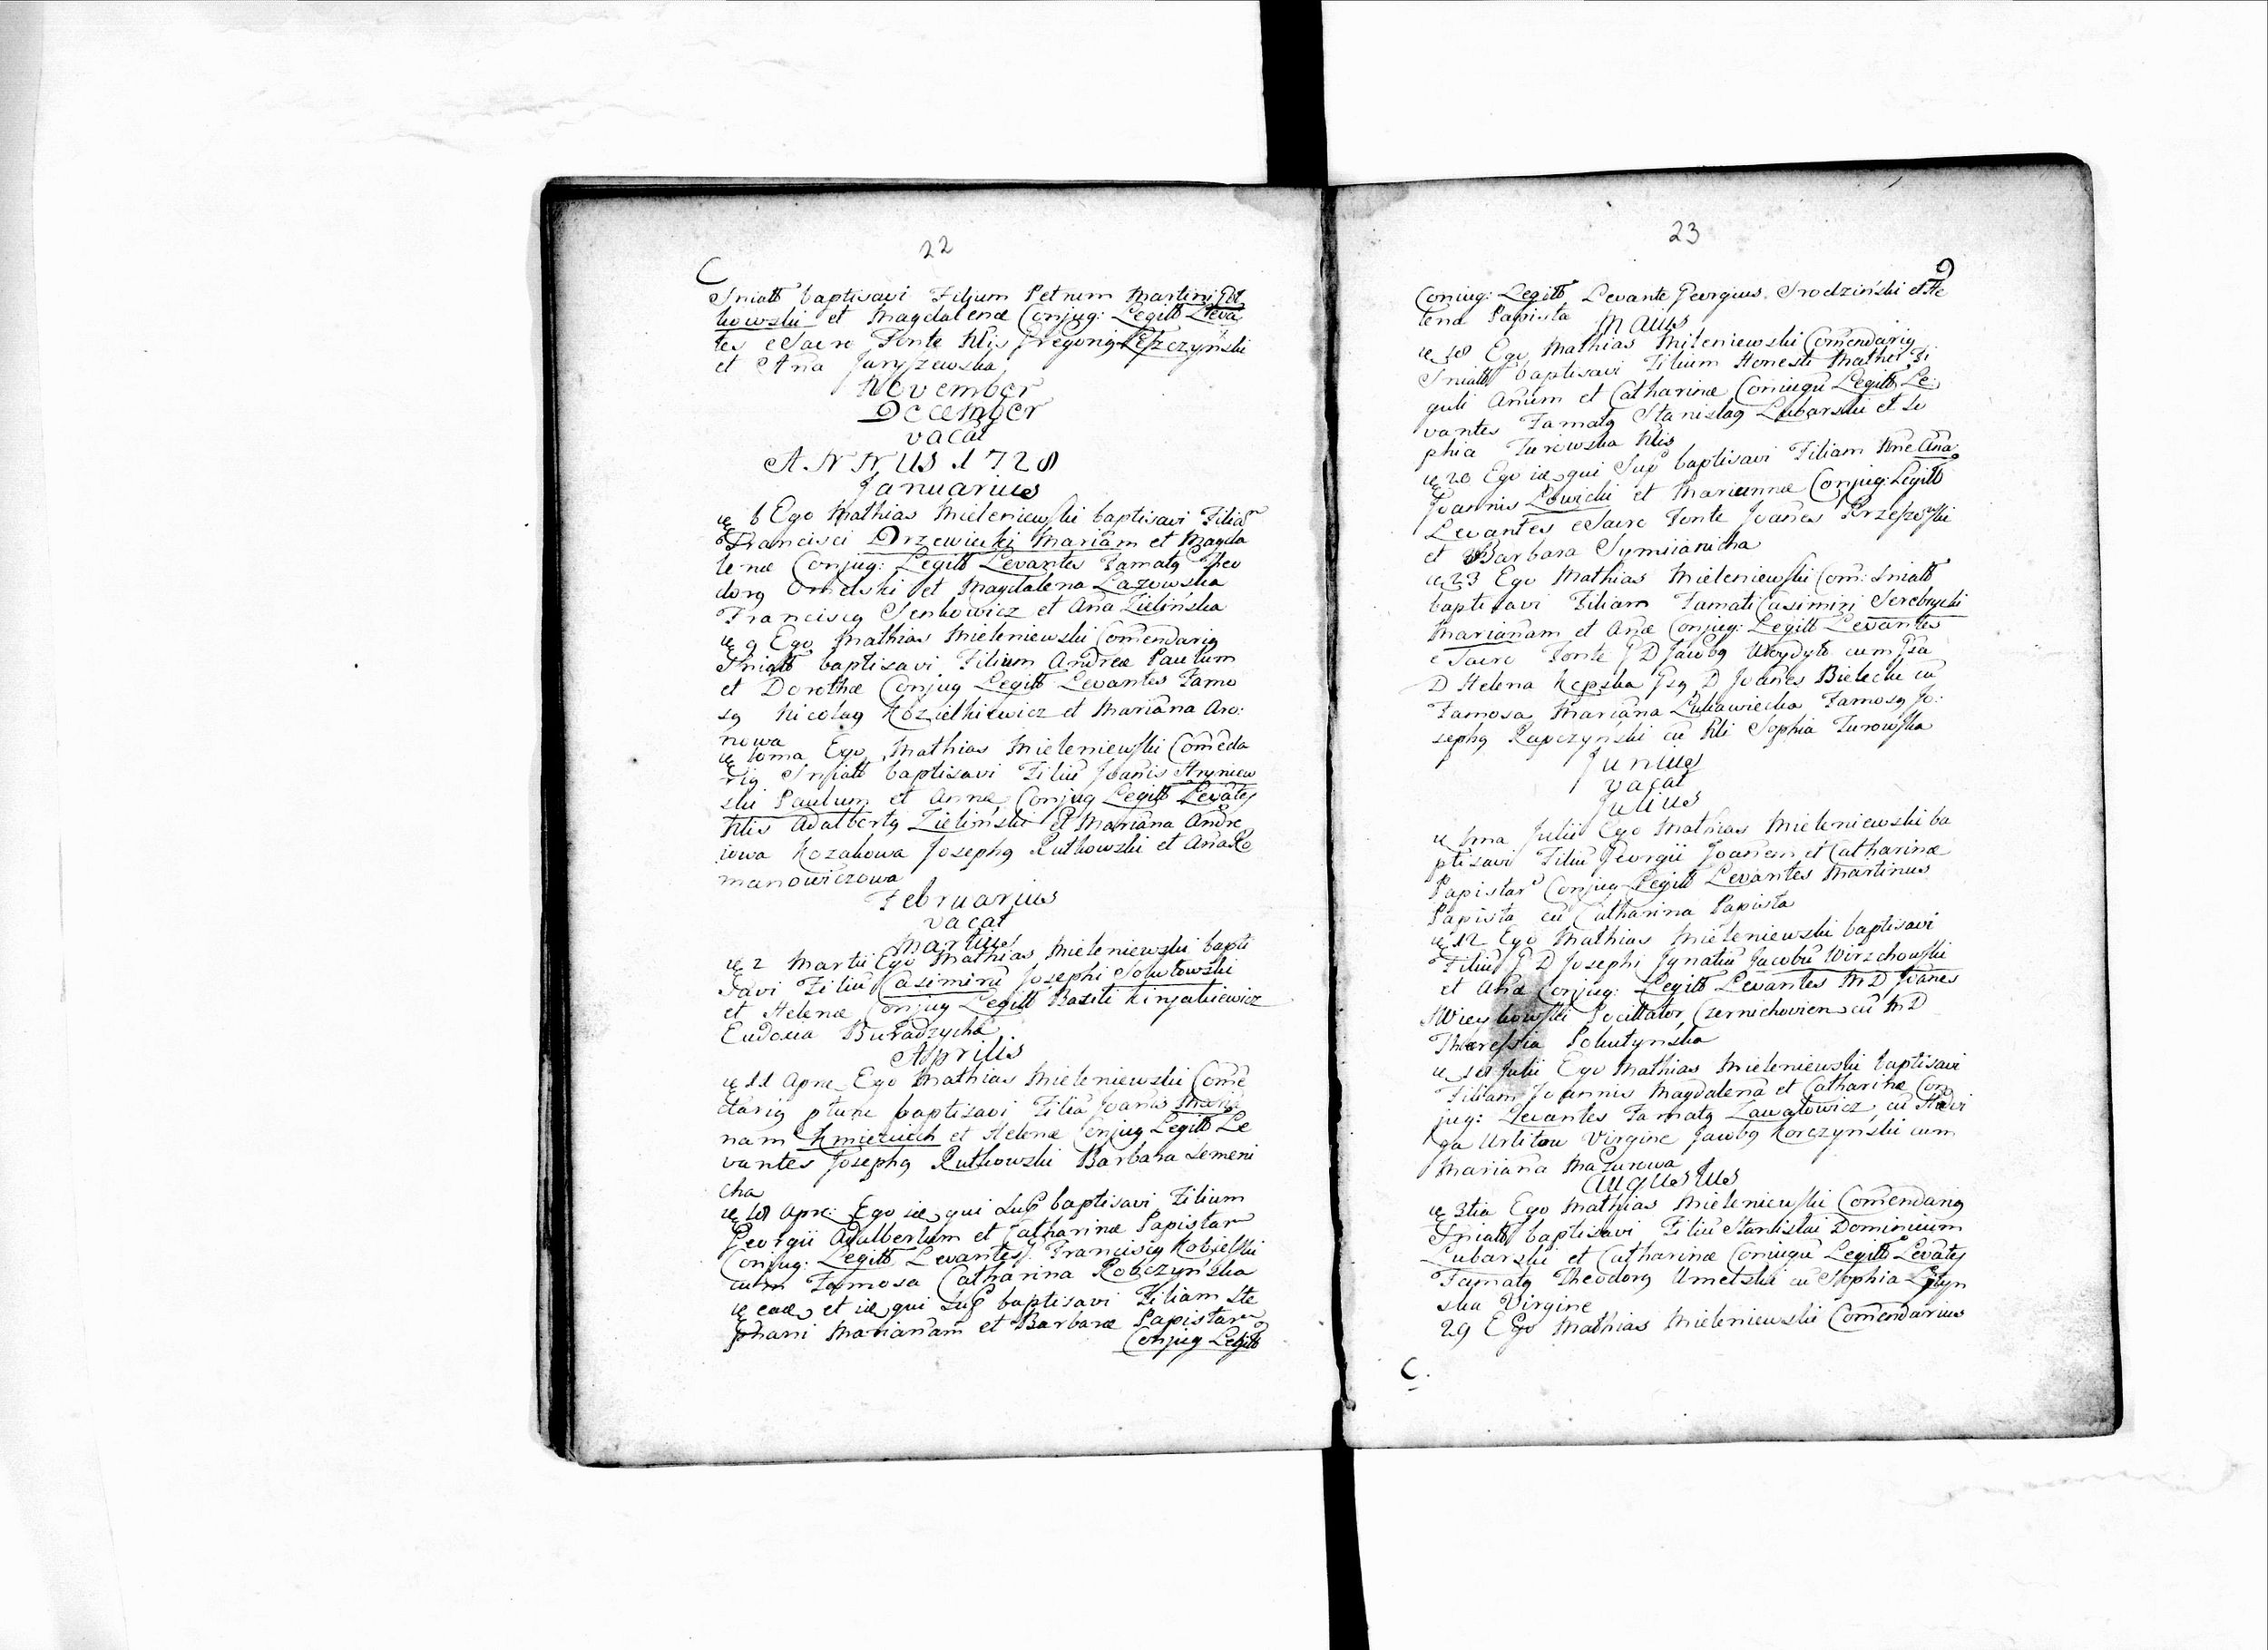 22
Sniatt baptisavi Filium Petrum Martini
kowski et Magdalenæ Conjug: Legitt Leva
tes e Sacro Fonte Nlis Gregorig Leszczyński
et Aña Jaryszewska
November
December
vacat
ANNUS 1728
Januarius
6 Ego Mathias Mieleniewski baptisavi Filiã
Francisci Drzewiecki Mariam et Magda
lenæ Conjug: Legitt Levantes Famatg Theo
dorg Omelski et Magdalena Lazowska
Franciscg Senkowicz et Aña Zielińska
9 Ego Mathias Mieleniewski Comendarig
Sniatt baptisavi Filium Andreæ Paulum
et Dorothæ Conjug Legitt Levantes Famo
sg Nicolag Kozielkiewicz et Mariãna Aro:
nowa
Ego Mathias Mieleniewski Comẽda
rig Sniatt baptisavi Filiũ Joãnis Hryniew
ski Paulum et Annæ Conjug Legitt Levãtes
Nlis Adalbertg Zieliński et Mariãna Andre
iowa Kozakowa Josephg Rutkowski et Aña Ro
manowiczowa
Februarius
vacat
Martius
2 Martii Ego Mathias Mieleniewski bapti
savi Filiũ Casimirũ Josephi Sokołowski
et Helenæ Conjug Legitt Basili Kinjatkiewicz
Eudoxia Buradzycha
Aprilis
11 Apre Ego Mathias Mieleniewski Comẽ
darig ptunc baptisavi Filiã Joãnis Mariã
nam Kmiecicch et Helenæ Conjug Legitt Le
vantes Josephg Rutkowski Barbara Semeni
cha
18 Apre: Ego iđ qui Sup baptisavi Filium
Georgii Adalbertum et Catharinæ Papistar
Conjug: Legitt Levantes Franciscg Kobielski
cum Famosa Catharina Robczyńska
eađ et iđ qui Sup baptisavi Filiam Ste
phani Mariañam et Barbaræ Papistar
Conjug Legitt
23
9
Conjug: Legitt Levante Georgius Srodziński et He
lena Papista
Maius
18 Ego Mathias Mileniewski Comendarig
Sniatt baptisavi Filium Honesti Mathei Fi
guli Añum et Catharinæ Conjugũ Legitt Le:
vantes Famatg Stanislag Lubarski et So
phia Turowska Nlis
20 Ego iđ qui Sup baptisavi Filiam Nñe Aña
Joannis Łowicki et Mariannæ Conjug: Legitt
Levantes e Sacro Fonte Joãnes Przeszowski
et Barbara Symsianicha
23 Ego Mathias Mieleniewski Com: Sniatt
baptisavi Filiam Famati Casimiri Serebrycki
Mariañam et Anæ Conjug: Legitt Levantes
e Sacro Fonte G D Jacobg Woydyło cum Gsa
D Helena Kępska Gsg D Joãnes Bielecki cũ
Famosa Mariãna Łukawiecka Famosg Jo:
sephg Rupczyński cũ Nli Sophia Turowska
Junius
vacat
Julius
1ma Julii Ego Mathias Mieleniewski ba
ptisavi Filiũ Georgii Joañem et Catharinæ
Papistar Conjug Legitt Levantes Martinus
Papista cũ Catharina Papista
12 Ego Mathias Mieleniewski baptisavi
Filiũ G D Josephi Ignatiũ Jacobũ Wirzchowski
et Añæ Conjug: Legitt Levantes M D Joãnes
Pocillator Czernichovien cũ M D
Theressia Pokutyńska
18 Julii Ego Mathias Mieleniewski baptisavi
Filiam Joannis Magdalenã et Catharinæ Con
jug: Levantes Famatg Zawałowicz cũ Hedvi
ga Virgine Jacobg Korczyński cum
Mariãna Mazurowa
Augustus
3tia Ego Mathias Mieleniewski Comendarig
Sniatt baptisavi Filiũ Stanislai Dominicum
Lubarski et Catharinæ Conjugũ Legitt Levãtes
Famatg Theodorg Umelski cũ Sophia
ska Virgine
29 Ego Mathias Mieleniewski Comendarius
C.